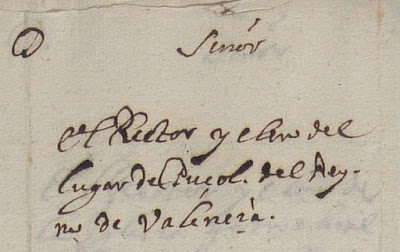 Señór
el Rector y clero del
Lugar de Puçol. del Rey-
no de Valencia.